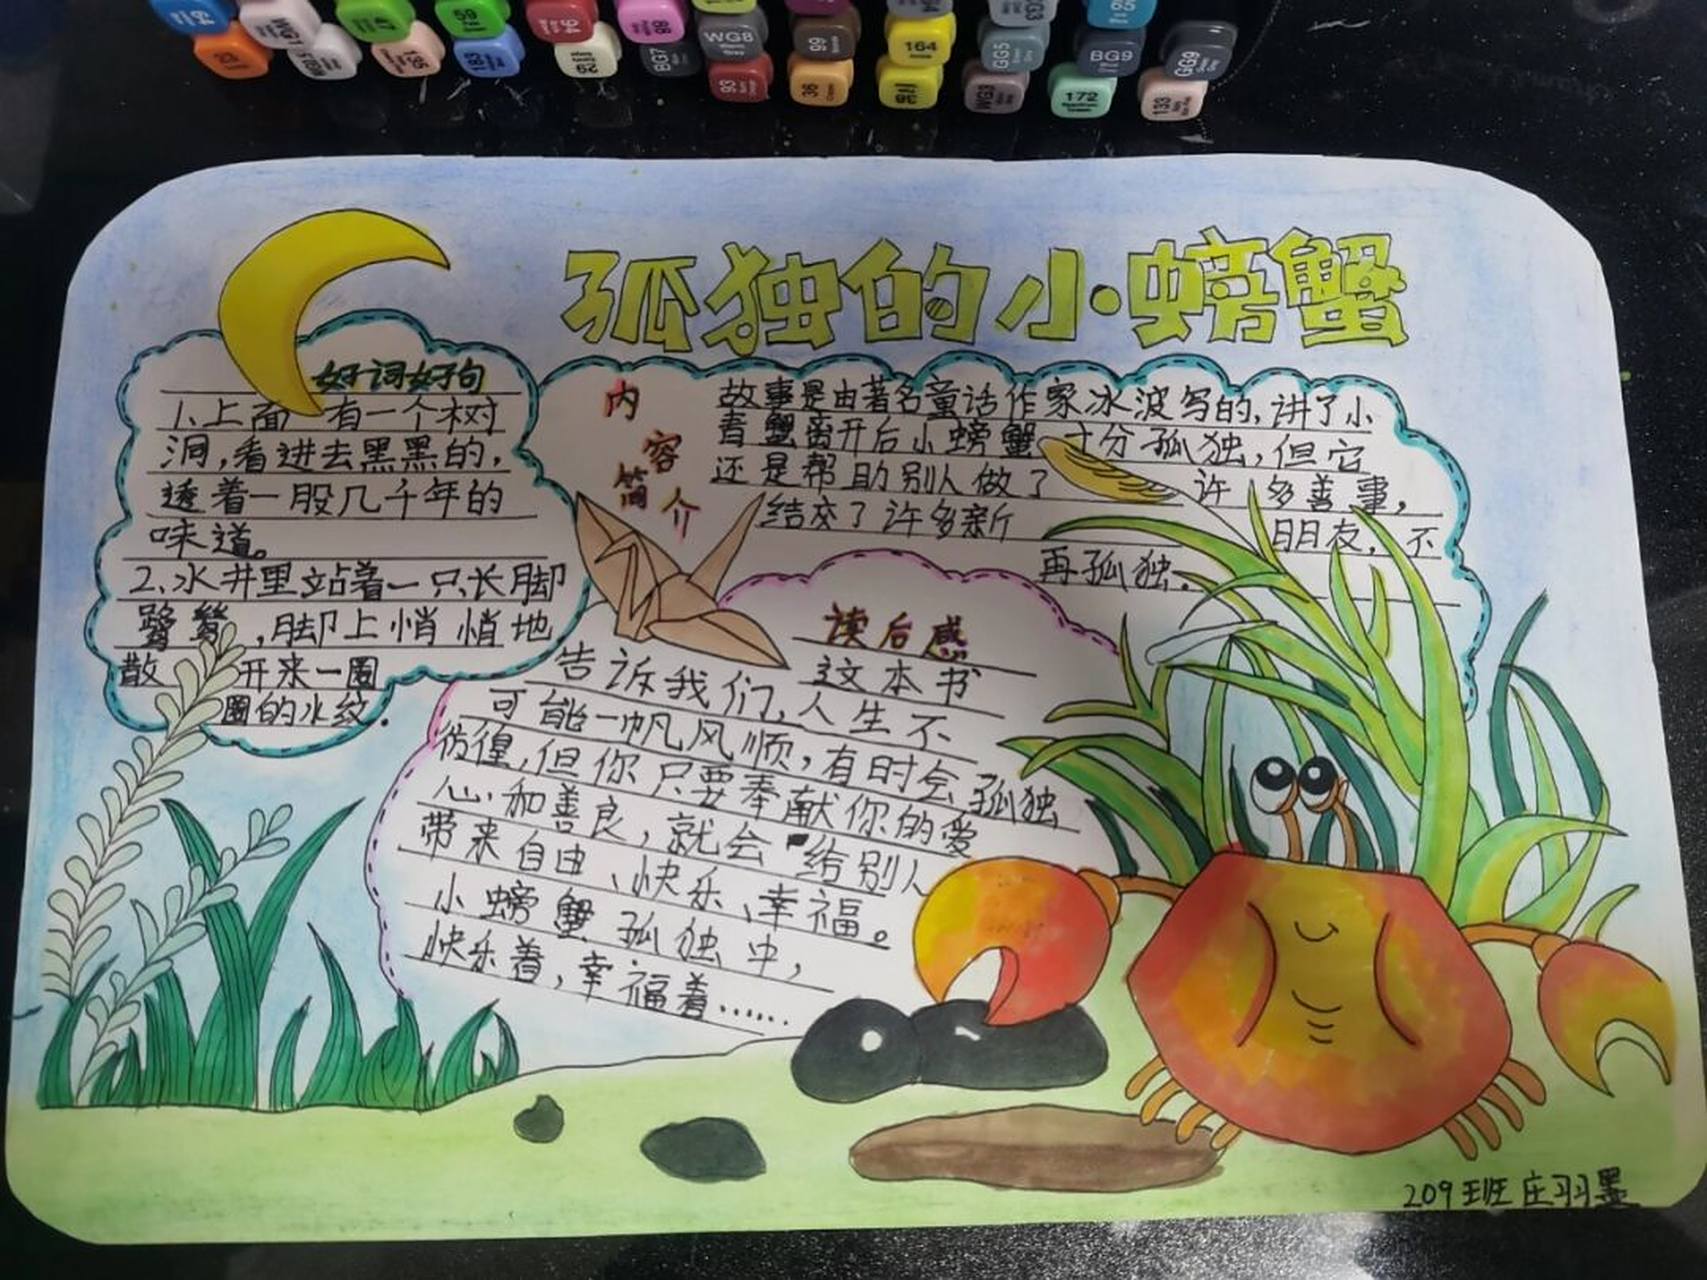 59
46
88
WG8
99
164
65
183
62
BG7
GG5
BG9
GG9
93
36
WG3
172
133
孤独的小螃蟹
好词好句
1、上面有一个树
洞,看进去黑黑的,
透着一股几千年的
味道。
2、水井里站着一只长脚
鹭鸶,脚上悄悄地
散开来一圈
圈的水纹.
内容简介
故事是由著名童话作家冰波写的,讲了小
青蟹离开后小螃蟹十分孤独,但它
还是帮助别人做了许多善事,
结交了许多新朋友,不
再孤独.
读后感
这本书
告诉我们,人生不
可能一帆风顺,有时会孤独
彷徨,但你只要奉献你的爱
心和善良,就会给别人
带来自由、快乐、幸福。
小螃蟹孤独中,
快乐着,幸福着……
209班庄羽墨